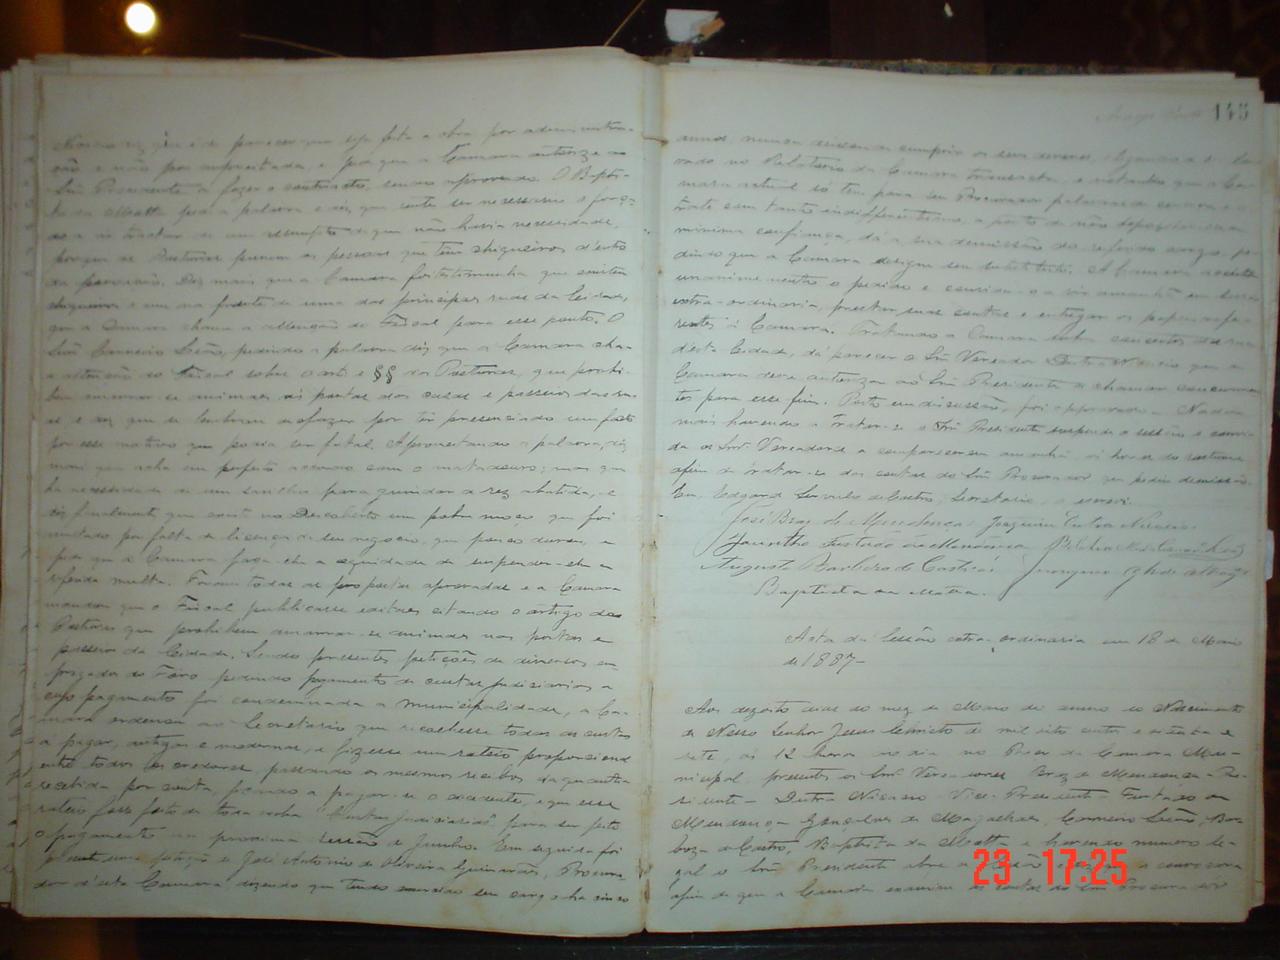 Nicacio diz que é de parecer que seja feita a obra por administra-
ção e não por empreitada, e que a Camara autorize ao
Snr Presidente a fazer o contracto, sendo approvado. O Baptis-
ta da Matta pede a palavra e diz que sente ser necessario
tractar de um assumpto de que não havia necessidade,
porque as Posturas punem as pessoas que têm chiqueiros dentro
da povoação. Diz mais que a Camara que existem
chiqueiros e um na frente de uma das principaes ruas da Cidade,
que a Camara chame a attenção do Fiscal para esse ponto. O
Snr Carneiro Leão, pedindo a palavra diz que a Camara cha-
e attenção do Fiscal sobre o art e §§ das Posturas, que prohi-
bem amarrar-se animaes ás portas das casas e passeios das ru-
as e diz que se lembrou de fazer por ter presenciado um facto
por esse motivo que podia ser fatal. a palavra, diz
mais que acha em perfeito accordo com o matadouro; mas que
ha necessidade de um para guindar a rez abatida, e
diz finalmente que existe no Descoberto um pobre moço que foi
multado por falta de licença de seu negocio, que pouco durou, e
pede que a Camara faça-lhe a equidade de suspender-lhe a
referida multa. Foram todas as propostas approvadas e a Camara
mandou que o Fiscal publicasse editaes citando o artigo das
Posturas que prohibem amarrar-se animaes nas portas e
passeios da Cidade. Sendo presentes petições de diversos em-
pregados do Fôro pedindo pagamento de custas judiciarias a
cujo pagamento foi condemnada a Municipalidade, a Ca-
mara ordenou ao Secretario que recolhesse todas as custas
a pagar, antigas e modernas, e fizesse um rateio proporcional
entre todos os credores, passando os mesmos recibos da quantia
recebida, por conta, ficando a pagar-se o excedente, e que esse
rateio fosse feito de toda verba "Custas judiciarias", para ser feito
o pagamento na proxima sessão de Junho. Em seguida foi
presente uma petição de José Antonio de Oliveira Guimarães, Procura-
dor d'esta Camara, dizendo que tendo exercido seu cargo ha cinco
145
annos, nunca deixou de cumprir os seus deveres,
vado no Relatorio da Camara transacta, e notando que a Ca-
mara actual só tem para seu Procurador palavras de censura e
trate com tanto indifferentismo a ponto de não depositar a
minima confiança, dá a sua demissão do referido cargo, pe-
dindo que a Camara designe seu substituto. A Camara acceita
unanimemente o pedido e convida-o a vir amanhã em sessão
extra-ordinaria, prestar suas contas e entregar os papeis refe-
rentes á Camara. Tratando a Camara sobre concertos das ruas
d'esta Cidade, dá parecer o Snr Vereador Dutra Nicacio que a
Camara deve autorizar ao Snr Presidente a chamar concorren-
tes para esse fim. Posto em discussão, foi approvado. Nada
mais havendo a tratar-se o Snr Presidente suspende a sessão e convi-
da os Snrs Vereadores a comparecerem amanhã ás horas do costume
afim de tratar-se das contas do Snr Procurador que pediu demissão.
Eu, Edgard de Castro, Secretario, o escrevi.
José Braz de Mendonça Joaquim Dutra Nicacio
Jacintho Furtado de Mendonça Carneiro Leão
Augusto Barboza de Castro
Baptista da Matta.
Acta da Sessão extra-ordinaria em 18 de Maio
de 1887-
Aos dezoito dias do mez de Maio do anno do Nascimento
de Nosso Senhor Jesus Christo de mil oito centos e oitenta e
sete, ás 12 horas do dia no Paço da Camara Mu-
nicipal, presentes os Snrs Vereadores Braz de Mendonça - Pre-
sidente - Dutra Nicacio Vice-Presidente - Furtado de
Mendonça Gonçalves de Magalhães, Carneiro Leão, Bar-
boza de Castro, Baptista da Matta e havendo numero le-
gal o Snr Presidente abre a sessão
afim de que a Camara examine as contas do Snr Procurador
23 17:25